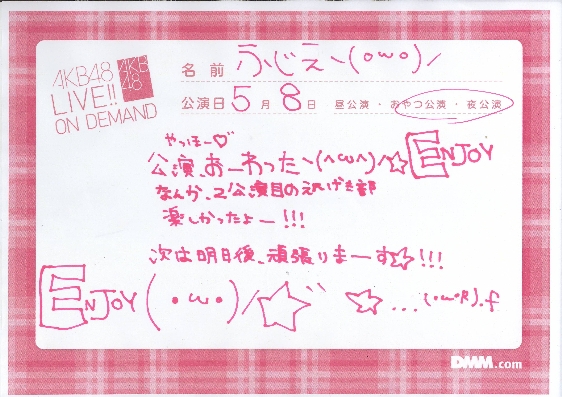 AKB48
LIVE!!
ON DEMAND
AKB
48
名前 ふじえ~(°ω°)/
公演日 5月8日 昼公演・おやつ公演・夜公演
やっほー♡
公演、おーわったー(^ω^)/☆ ENJOY
なんか、2公演目の
楽しかったよー!!!
次は明日後、頑張りまーす☆!!!
ENJOY(・ω・)/☆゛ ☆...(・ω・R).f
DMM.com